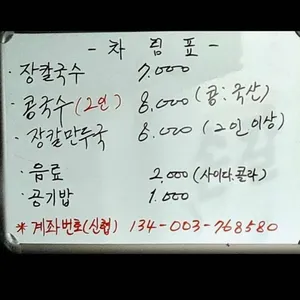 - 차 림 표 -
· 장칼국수 7.000
· 콩국수(2인) 8.000 (콩:국산)
· 장칼만두국 8.000 (2인 이상)
· 음료 2.000 (사이다.콜라)
· 공기밥 1.000
* 계좌번호(신협) 134-003-768580